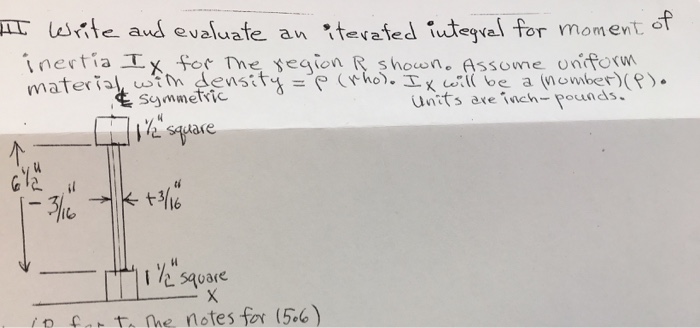 III Write and evaluate an iterated integral for moment of
inertia Ix for The region R shown. Assume uniform
material, with density = ρ (rho). Ix will be a (number)(ρ).
℄ symmetric
Units are inch-pounds.
1 1/2" square
6 1/2"
- 3/16"
+3/16"
1 1/2" square
X
The notes for (5.6)